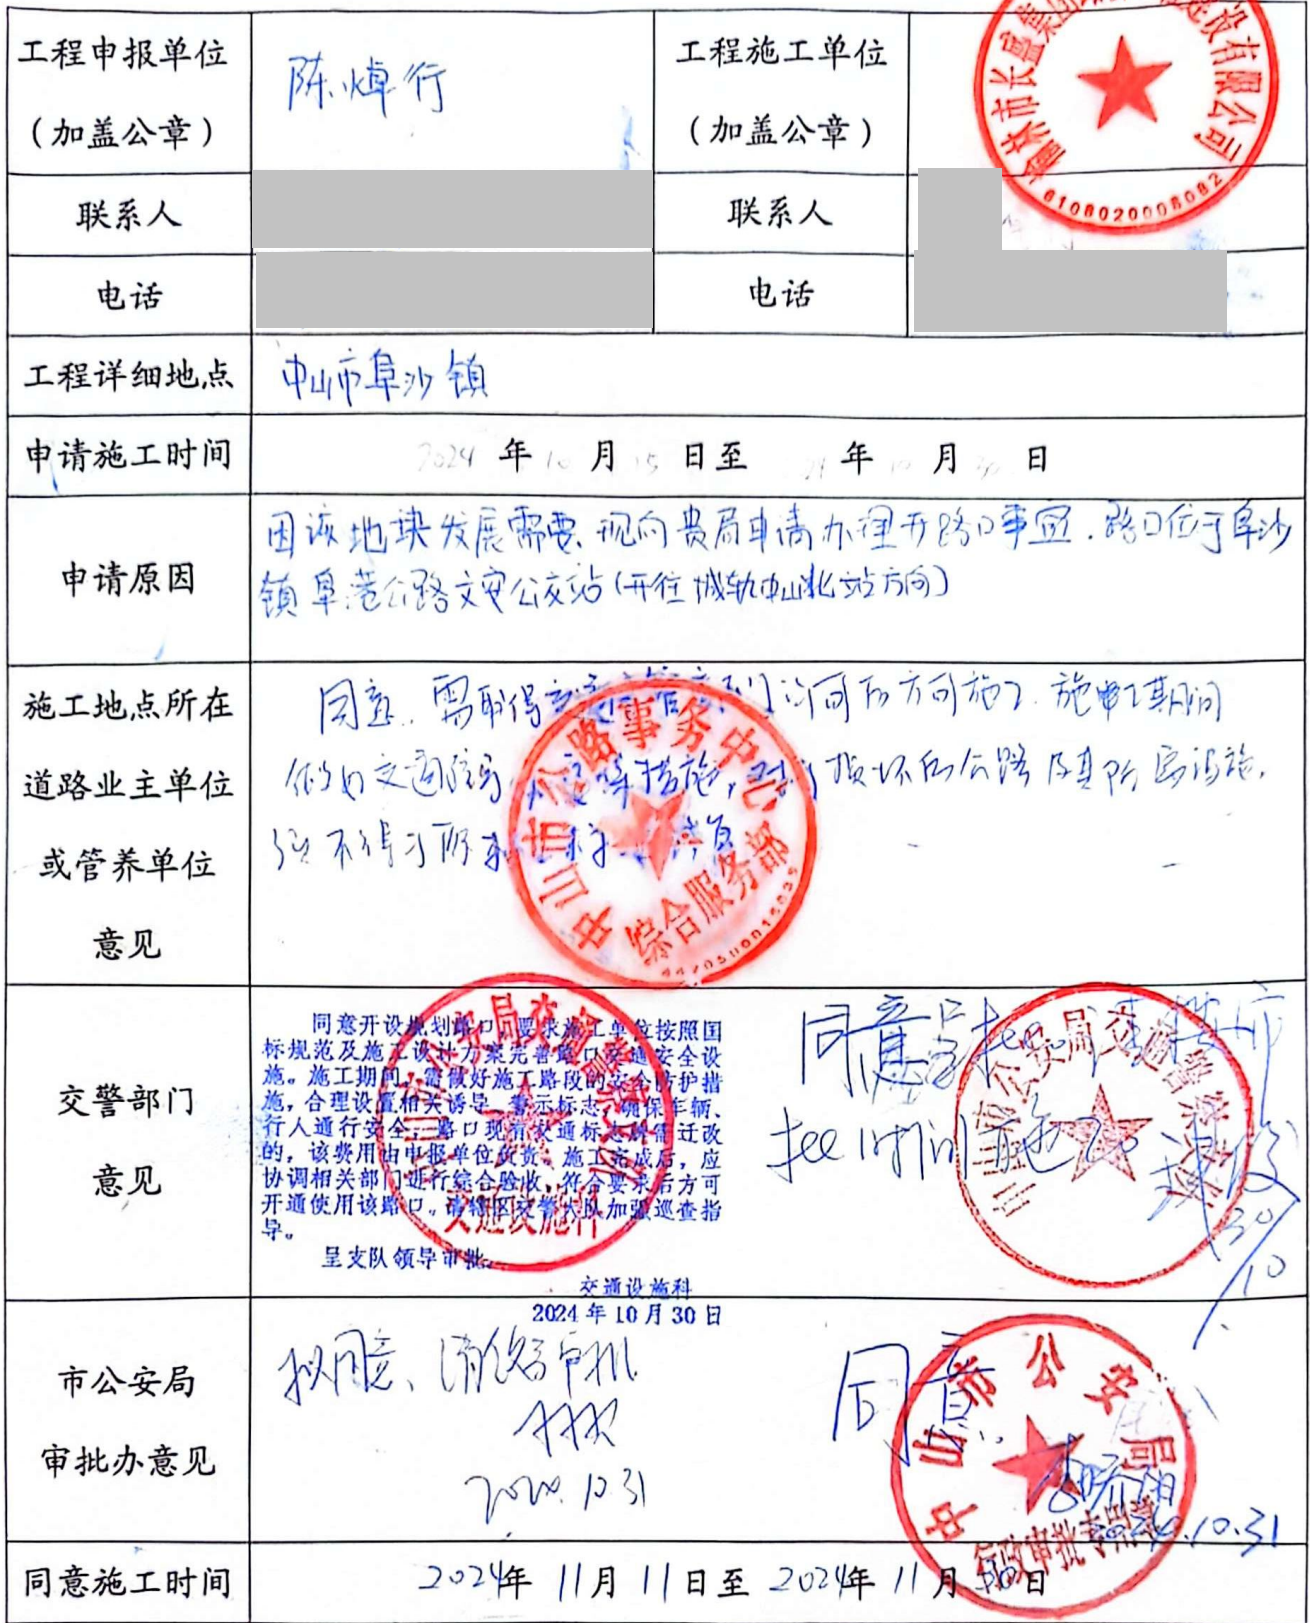 工程申报单位
（加盖公章）
陈焯行
工程施工单位
（加盖公章）
榆林市长盛集团 建设有限公司
6108020008082
联系人
联系人
电话
电话
工程详细地点
中山市阜沙镇
申请施工时间
2024 年 10 月 15 日至 年 月 日
申请原因
因该地块发展需要,现向贵局申请办理开路口事宜.路口位于阜沙
镇阜港公路文安公交站(开往城轨中山北站方向)
施工地点所在
道路业主单位
或管养单位
意见
同意.需取得 许可后方可施工.施工期间
做好交通 等措施, 损坏的公路及其附属设施,
中山市公路事务中心
综合服务部
交警部门
意见
同意开设规划路口，要求施工单位按照国
标规范及施工设计方案完善路口交通安全设
施。施工期间，需做好施工路段的安全防护措
施，合理设置相关诱导、警示标志，确保车辆、
行人通行安全，路口现有交通标志牌需迁改
的，该费用由申报单位负责。施工完成后，应
协调相关部门进行综合验收，符合要求后方可
开通使用该路口。请辖区交警大队加强巡查指
导。
呈支队领导审批。
交通设施科
2024年10月30日
交通设施科
同意
批时间施工。
30/10
中山市公安局交通警察支队
市公安局
审批办意见
拟同意、请 审批
10.31
同意
10.31
中山市公安局
行政审批专用章
同意施工时间
2024年 11月 11日至 2024年 11月 30日